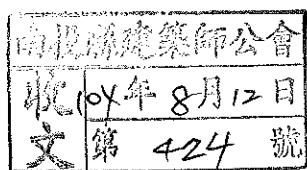 南投縣建築師公會
收文
104年8月12日
第 424 號